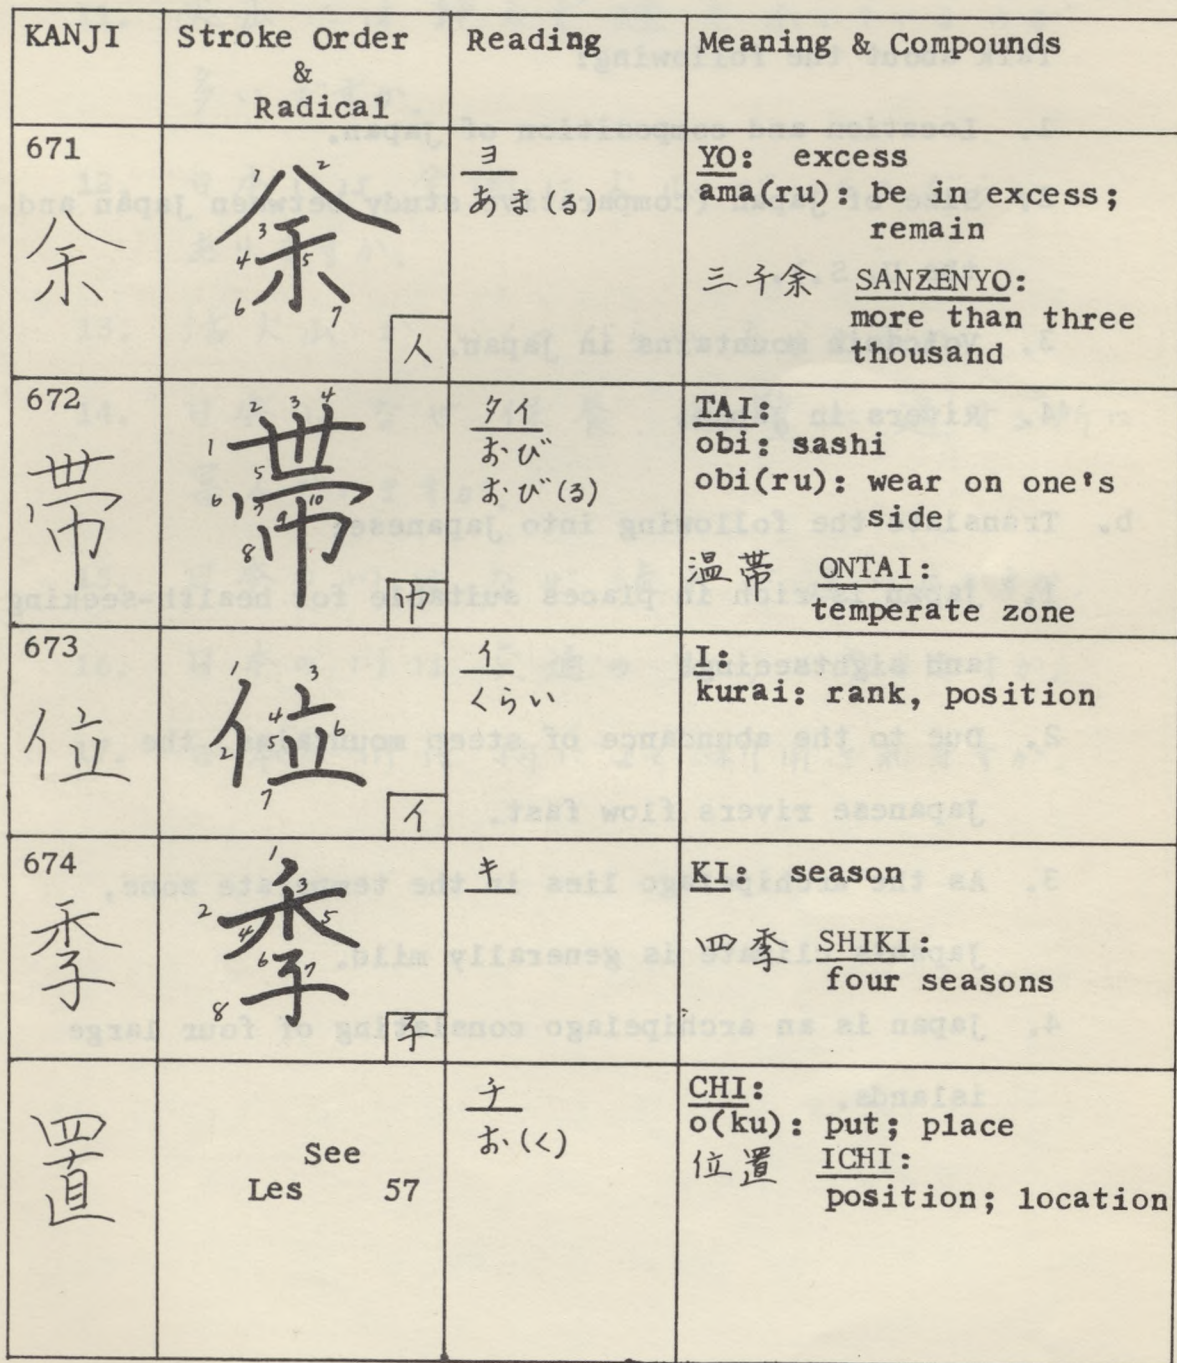 KANJI
Stroke Order
&
Radical
Reading
Meaning & Compounds
671
余
1 2 3 4 5 6 7
余
人
ヨ
あま(る)
YO: excess
ama(ru): be in excess;
remain
三千余 SANZENYO:
more than three
thousand
672
帯
1 2 3 4 5 6 7 8 9 10
帯
巾
タイ
おび
おび(る)
TAI:
obi: sashi
obi(ru): wear on one's
side
温帯 ONTAI:
temperate zone
673
位
1 2 3 4 5 6 7
位
イ
イ
くらい
I:
kurai: rank, position
674
季
1 2 3 4 5 6 7 8
季
子
キ
KI: season
四季 SHIKI:
four seasons
置
See
Les 57
チ
お(く)
CHI:
o(ku): put; place
位置 ICHI:
position; location